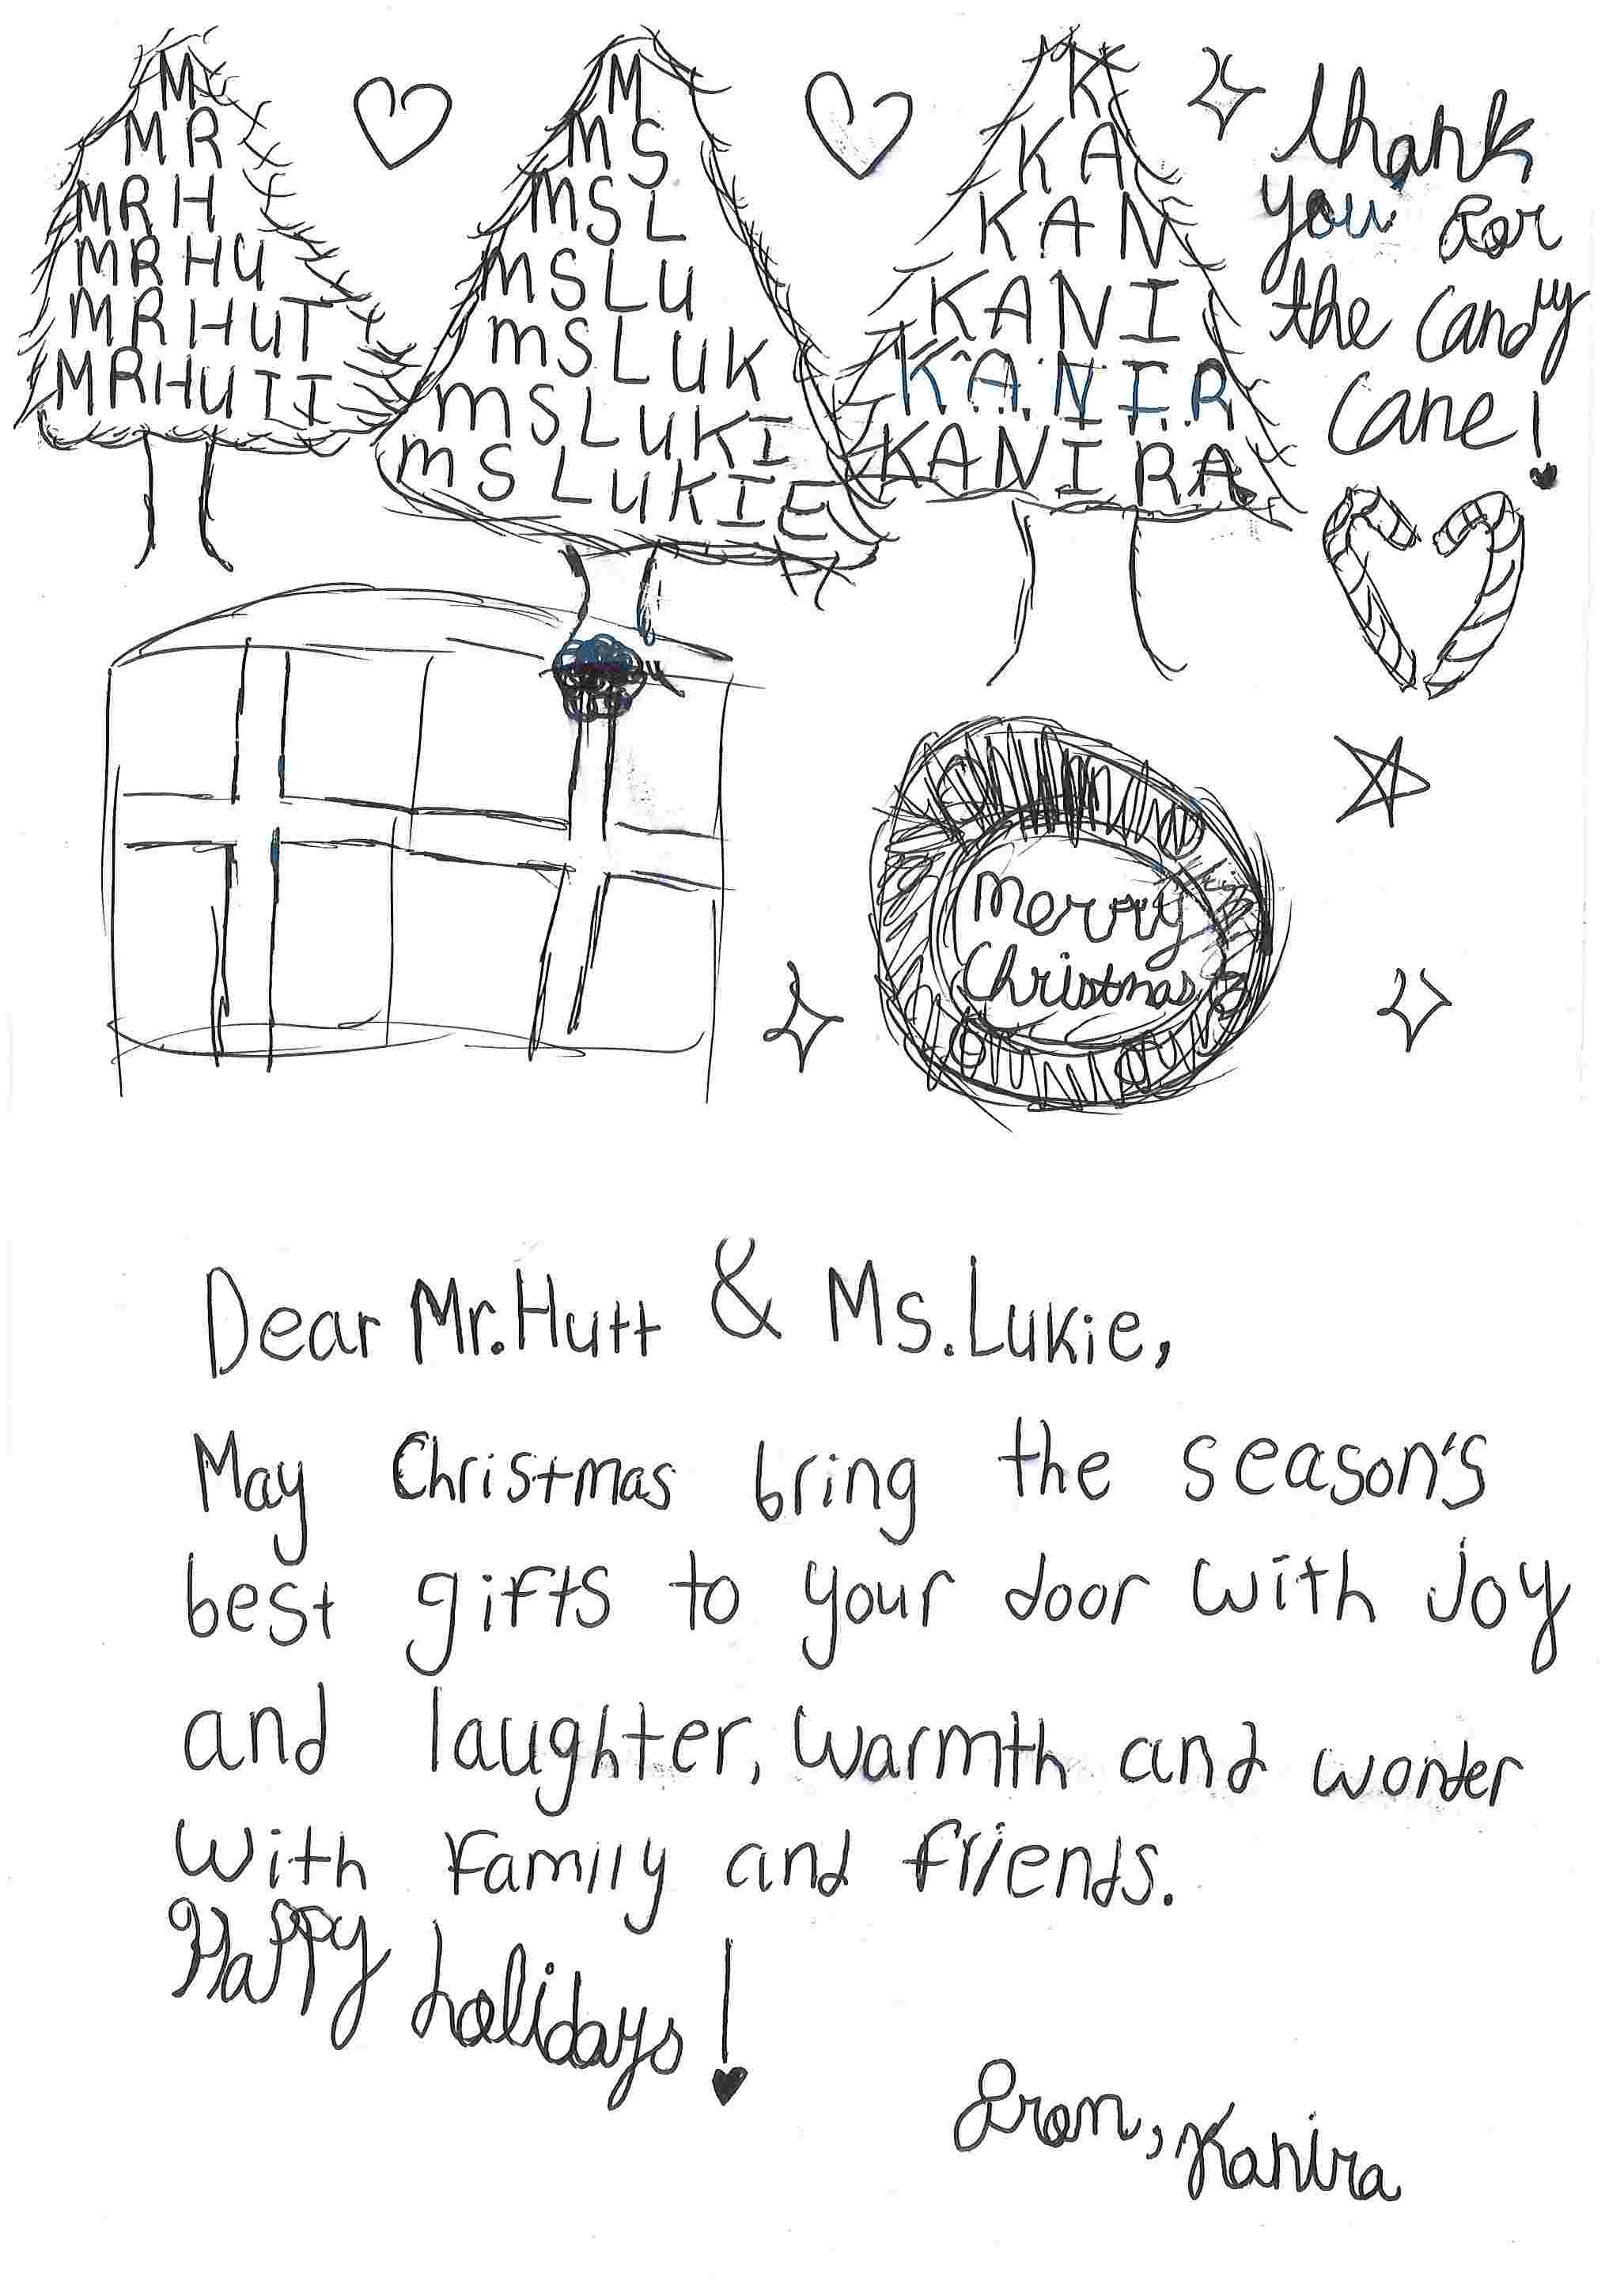 M
MR
MRH
MRHU
MRHUT
MRHUTT
M
MS
MSL
MSLU
MSLUK
MSLUKI
MSLUKIE
K
KA
KAN
KANI
KANIR
KANIRA
thank
you for
the candy
cane!
Merry
Christmas
Dear Mr. Hutt & Ms. Lukie,
May Christmas bring the season's
best gifts to your door with joy
and laughter, warmth and wonder
with family and friends.
Happy holidays!
From, Kanira